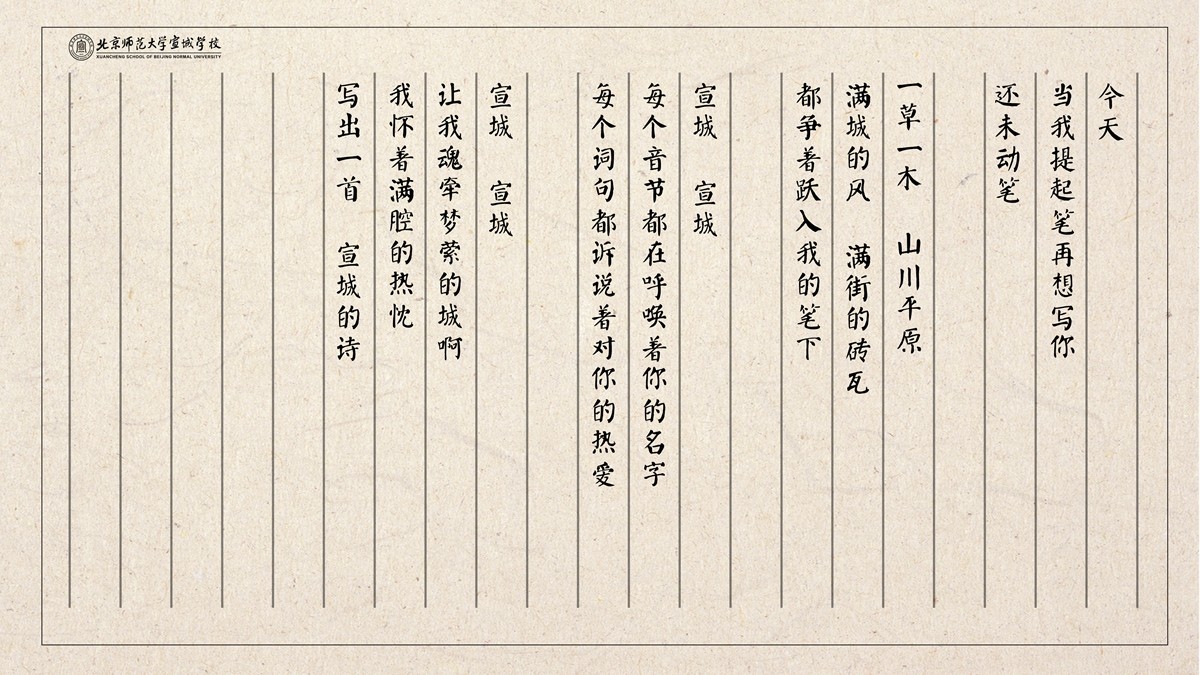 北京师范大学宣城学校
XUANCHENG SCHOOL OF BEIJING NORMAL UNIVERSITY
今天
当我提起笔再想写你
还未动笔
一草一木 山川平原
满城的风 满街的砖瓦
都争着跃入我的笔下
宣城 宣城
每个音节都在呼唤着你的名字
每个词句都诉说着对你的热爱
宣城 宣城
让我魂牵梦萦的城啊
我怀着满腔的热忱
写出一首 宣城的诗